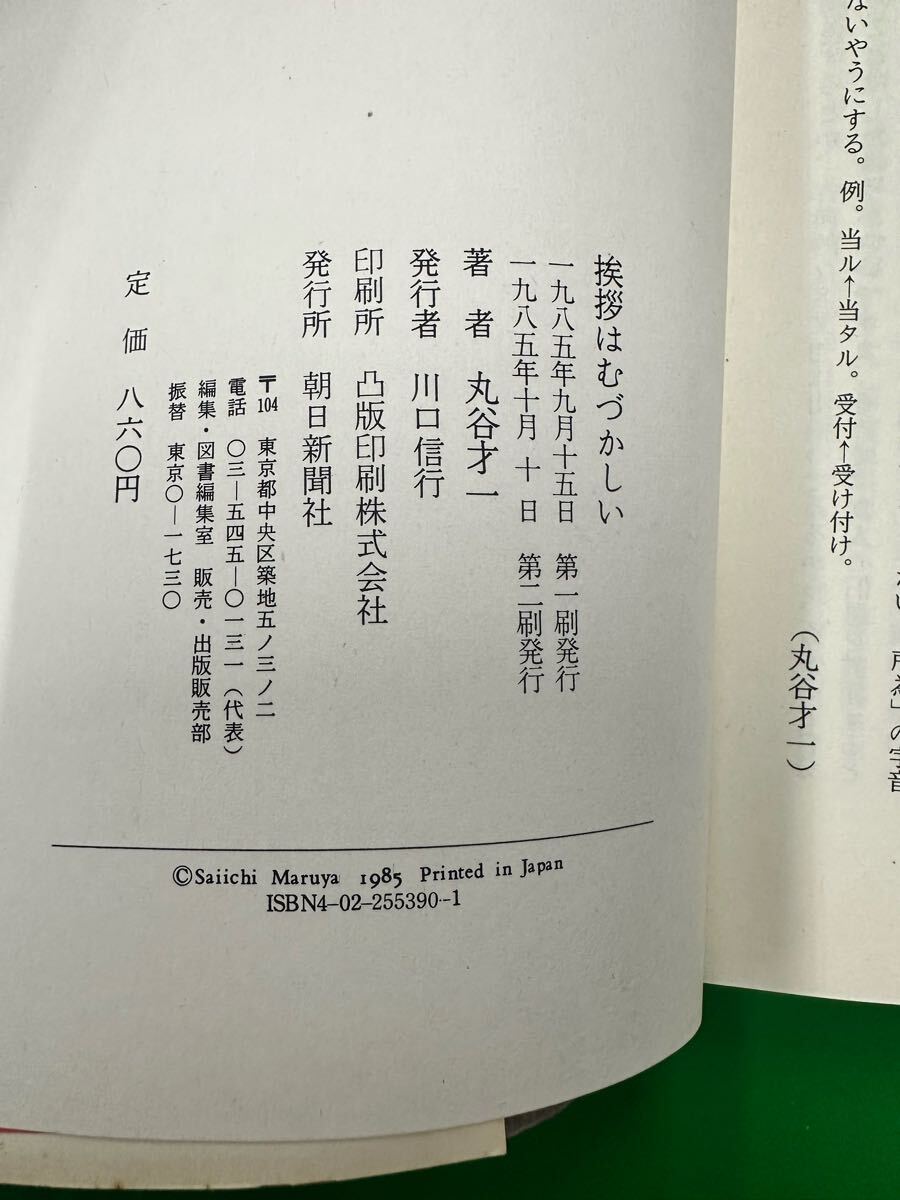 ないやうにする。例。当ル←当タル。受付←受け付け。
(丸谷才一)
挨拶はむづかしい
一九八五年九月十五日 第一刷発行
一九八五年十月十日 第二刷発行
著者 丸谷才一
発行者 川口信行
印刷所 凸版印刷株式会社
発行所 朝日新聞社
〒104 東京都中央区築地五ノ三ノ二
電話 〇三―五四五―〇一三一(代表)
編集・図書編集室 販売・出版販売部
振替 東京〇―一七三〇
定価 八六〇円
©Saiichi Maruya 1985 Printed in Japan
ISBN4-02-255390-1